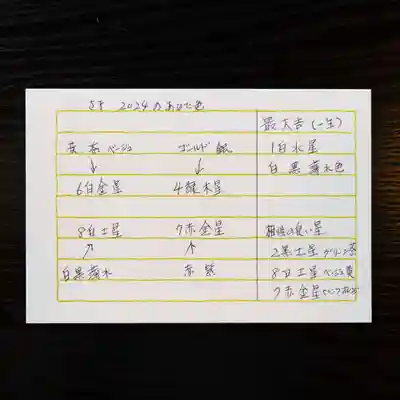 2024のあげ色
黄 茶 ベージュ
↓
6白金星
ゴールド 銀
↓
4緑木星
8白土星
↗
白黒薄水
7赤金星
↑
赤 紫
最大吉(一生)
1白水星
白 黒 薄水色
相性の良い星
2黒土星 グリーン 茶
8白土星 ベージュ 黄
7赤金星 ピンク